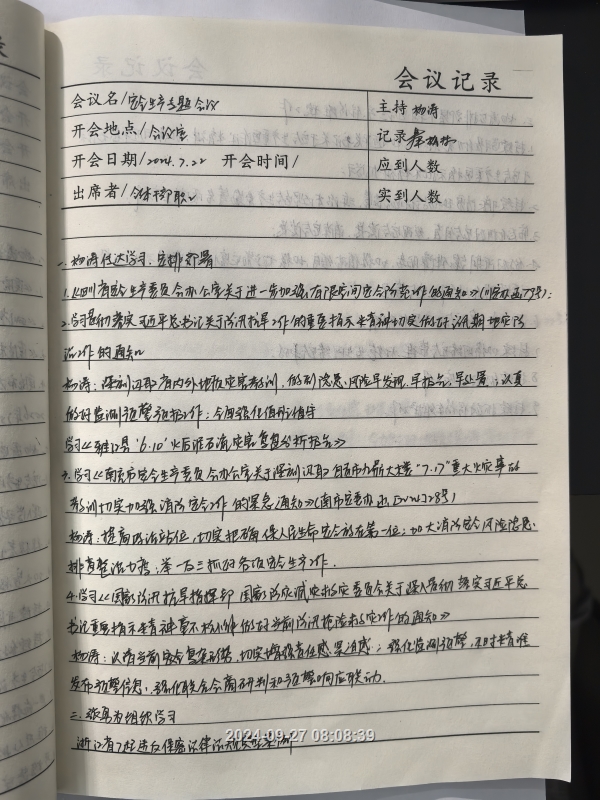 会议记录
会议名/安全生产专题会议
主持 杨涛
开会地点/会议室
记录
开会日期/2024.7.22 开会时间/
应到人数
出席者/全体干部职工
实到人数
一.杨涛传达学习、安排部署
1.《四川省安全生产委员会办公室关于进一步加强有限空间安全防范工作的通知》(川安办函79号);
2.学习贯彻落实习近平总书记关于防汛抗旱工作的重要指示精神切实做好汛期地灾防
治工作的通知
杨涛:深刻汲取省内外地质灾害教训,做到隐患风险早发现、早报告、早处置;认真
做好监测预警预报工作;全面强化值班值守
学习《雅江县"6.10"火后泥石流灾害复盘分析报告》
3.学习《南充市安全生产委员会办公室关于深刻汲取自贡市九鼎大楼"7.17"重大火灾事故
教训切实加强消防安全工作的紧急通知》(南市安委办函[2024]28号)
杨涛:提高政治站位,切实把确保人民生命安全放在第一位;加大消防安全风险隐患
排查整治力度;举一反三抓好各项安全生产工作.
4.学习《国家防汛抗旱指挥部 国家防灾减灾救灾委员会关于深入贯彻落实习近平总
书记重要指示精神 做好当前防汛抢险救灾工作的通知》
杨涛:认清当前安全复杂形势,切实增强责任感紧迫感;强化监测预警,及时精准
发布预警信息,强化联合会商研判和预警响应联动.
二.组织学习
浙江省7起违反保密法律法规典型案例
2024-09-27 08:08:39